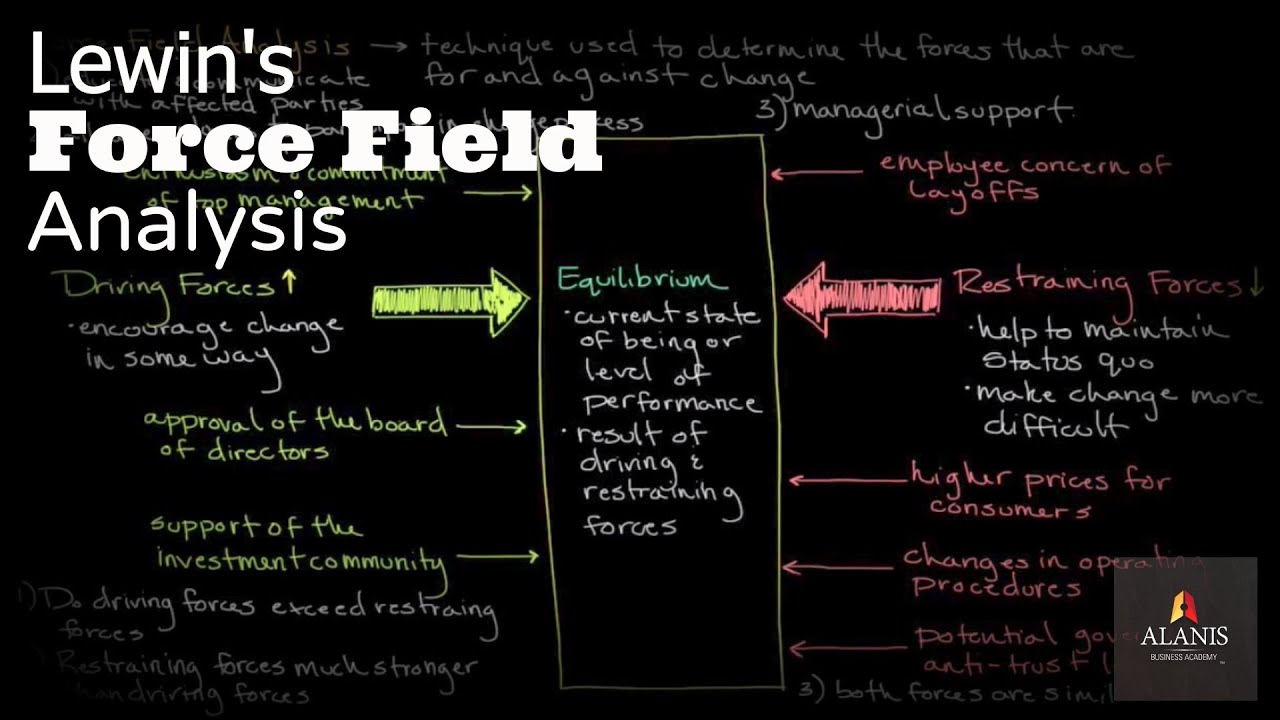 Lewin's
Force Field
Analysis
Field Analysis → technique used to determine the forces that are
for and against change
communicate
with affected parties
3) managerial support
in change process
enthusiasm & commitment
of top management
employee concern of
layoffs
Driving Forces ↑
· encourage change
in some way
approval of the board
of directors
support of the
investment community
Equilibrium
· current state
of being or
level of
performance
· result of
driving &
restraining
forces
Restraining Forces ↓
· help to maintain
status quo
· make change more
difficult
higher prices for
consumers
changes in operating
procedures
potential
anti-trust
1) Do driving forces exceed restraing
forces
Restraining forces much stronger
than driving forces
3) both forces are
ALANIS
BUSINESS ACADEMY
TM